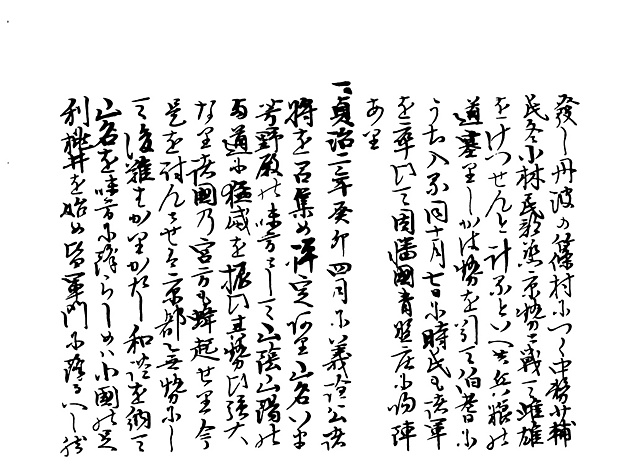 發し丹波の篠村につく中務少輔
民冬小林民部丞京勢と戦て雌雄
をけつせんと計るといへ共兵粮の
道塞りしかは勢を引て伯耆に
うち入る同十月七日に時氏も諸軍
を率ひて因幡國青照庄に帰陣
あり
一貞治二年癸卯四月に義詮公諸
將を召集め評定ある山名は
芳野殿の味方として山陰山陽の
両道に猛威を振ひ其勢ひ強大
なり諸國の宮方も蜂起せり今
是を討んとせは京都無勢にし
て後難もかりかたし和談を納て
山名を味方に降らしめは小國の足
利桃井を始め皆軍門に降るへし